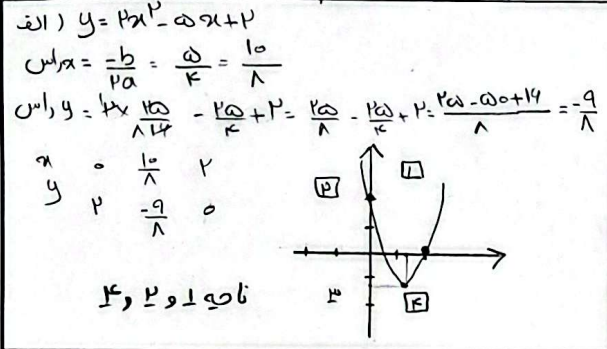 الف) y = ۲x² - ۵x + ۲
xراس = -b/۲a = ۵/۴ = ۱۰/۸
yراس = ۲ × ۲۵/۱۶ ۸ - ۲۵/۴ + ۲ = ۲۵/۸ - ۲۵/۴ + ۲ = ۲۵-۵۰+۱۶/۸ = -۹/۸
x ۰ ۱۰/۸ ۲
y ۲ -۹/۸ ۰
۲ ۱
۳ ۴
ناحیه ۱ و ۲ و ۴